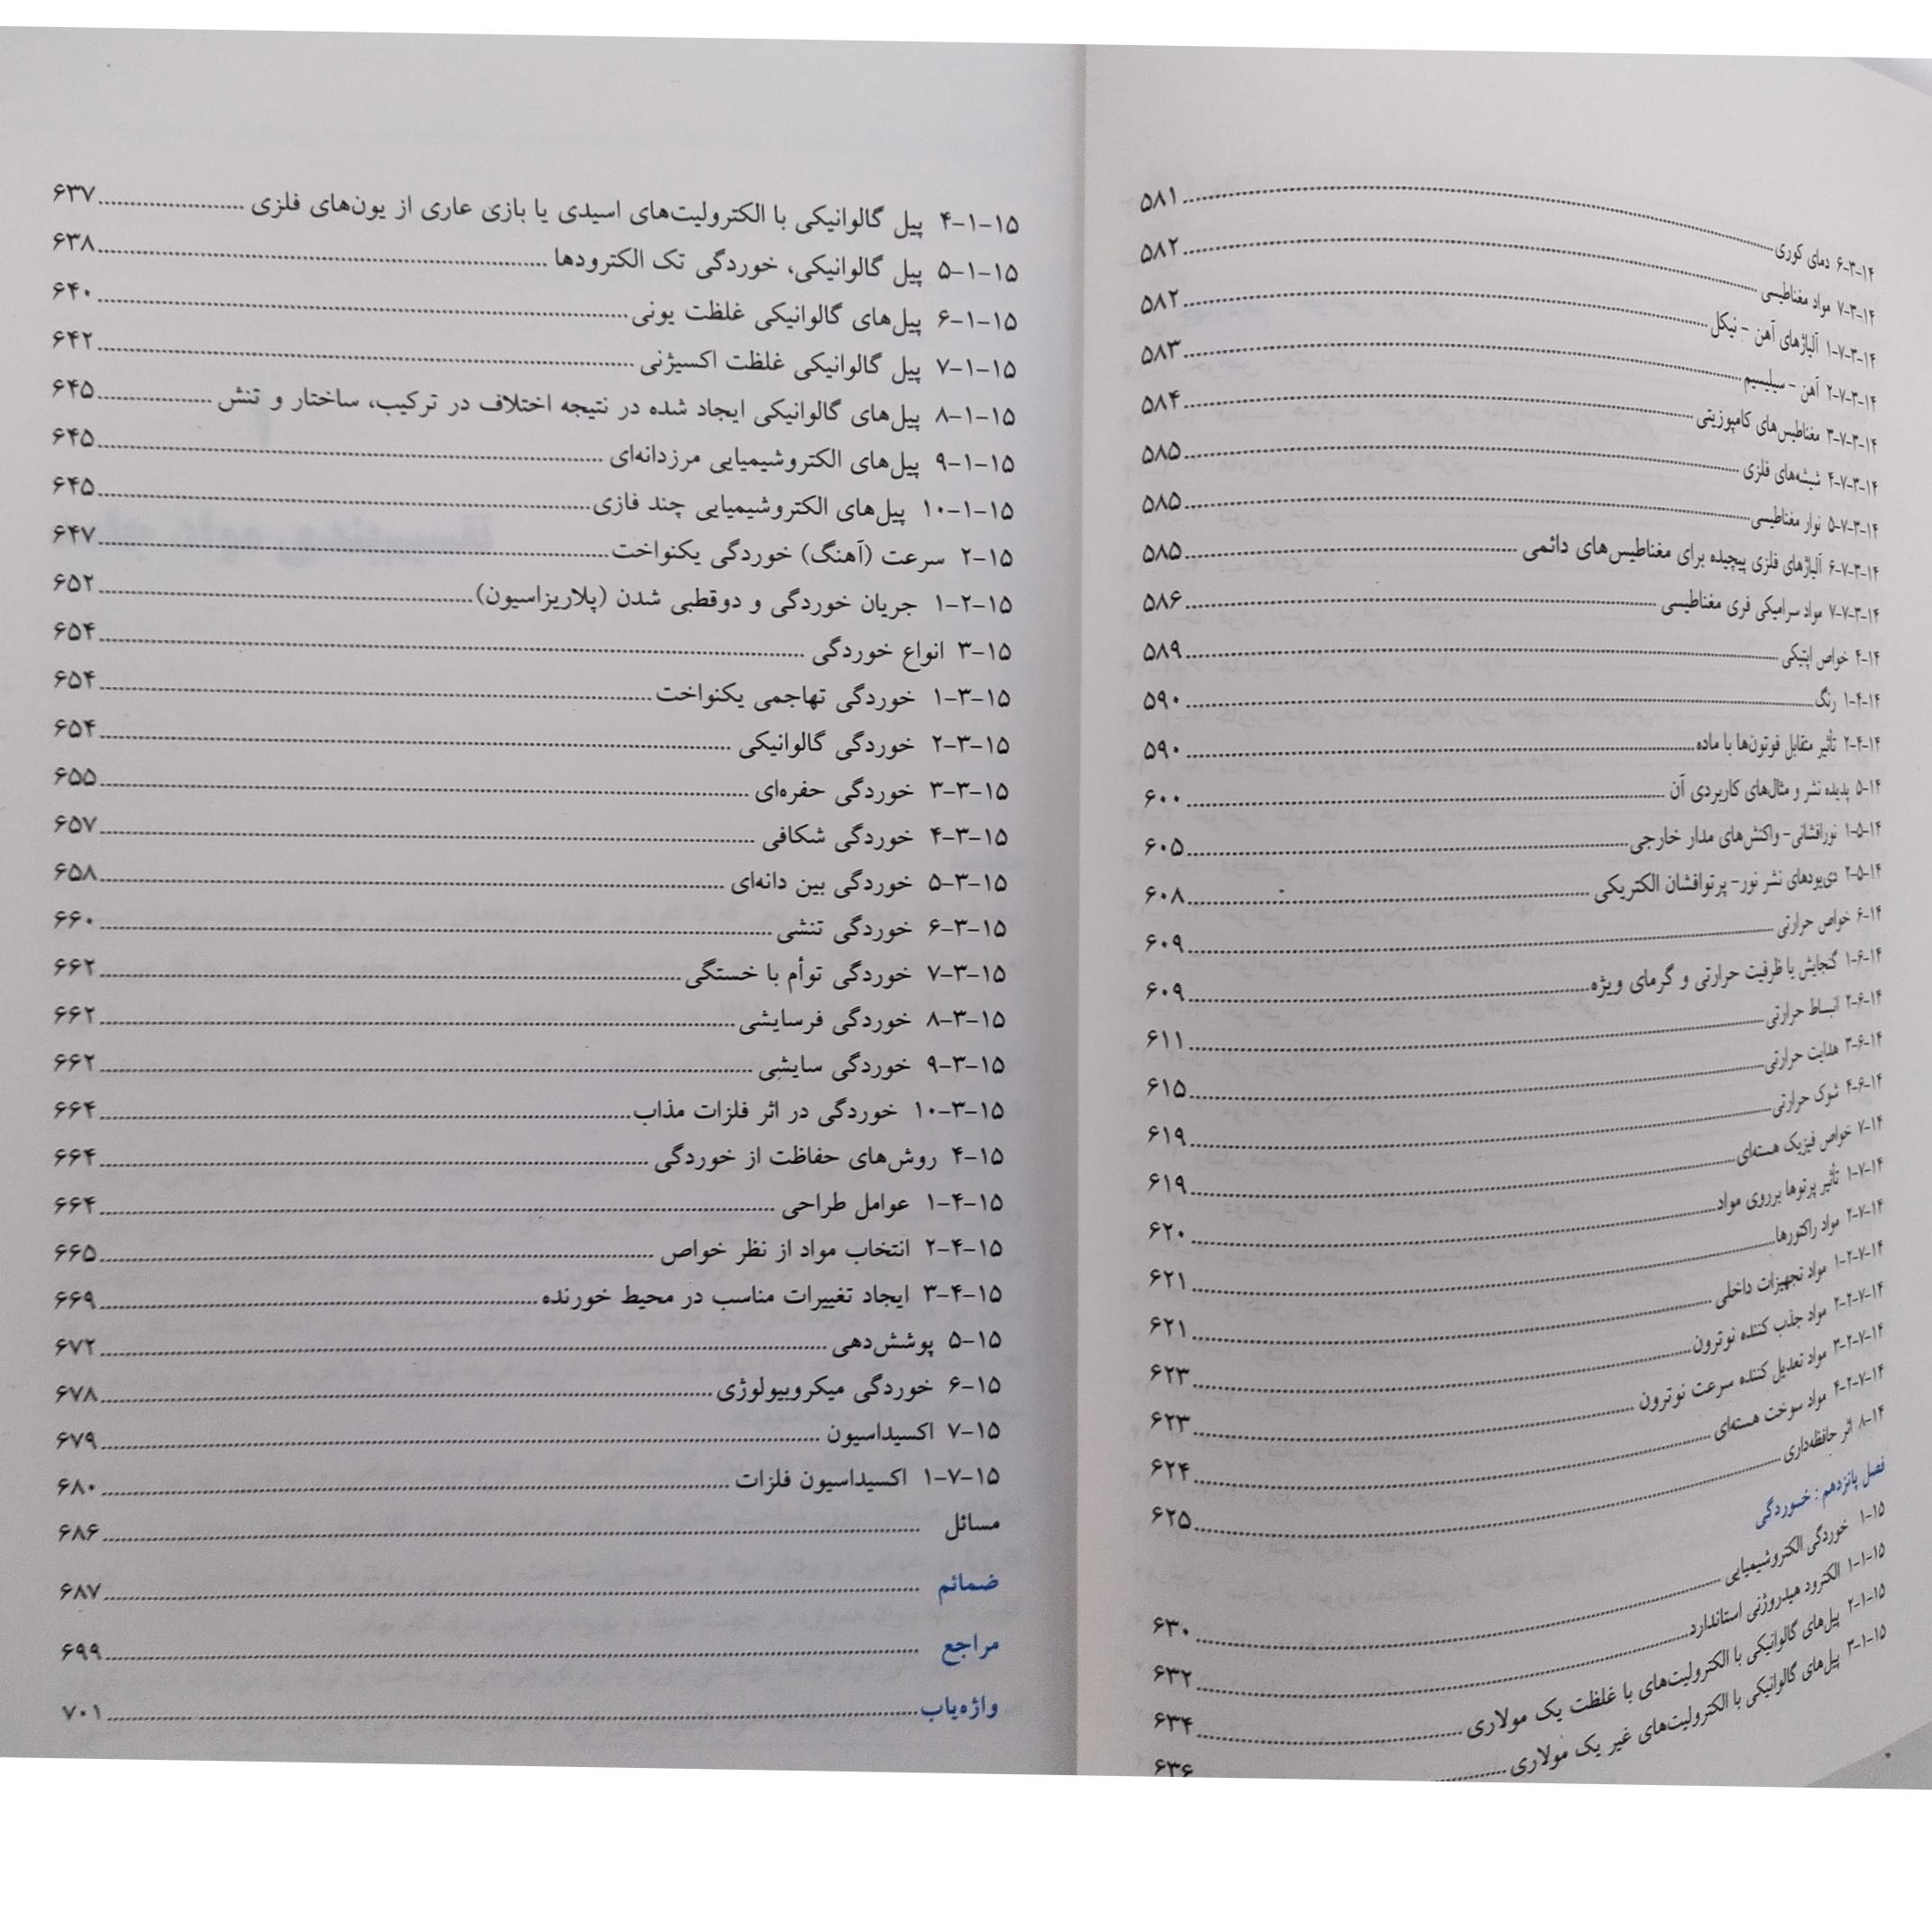 ۱۴-۳-۶ دمای کوری ۵۸۱
۱۴-۳-۷ مواد مغناطیسی ۵۸۲
۱۴-۳-۷-۱ آلیاژهای آهن - نیکل ۵۸۲
۱۴-۳-۷-۲ آهن - سیلیسیم ۵۸۳
۱۴-۳-۷-۳ مغناطیس‌های کامپوزیتی ۵۸۴
۱۴-۳-۷-۴ شیشه‌های فلزی ۵۸۵
۱۴-۳-۷-۵ نوار مغناطیسی ۵۸۵
۱۴-۳-۷-۶ آلیاژهای فلزی پیچیده برای مغناطیس‌های دائمی ۵۸۵
۱۴-۳-۷-۷ مواد سرامیکی فری مغناطیسی ۵۸۶
۱۴-۴ خواص اپتیکی ۵۸۹
۱۴-۴-۱ رنگ ۵۹۰
۱۴-۴-۲ تأثیر متقابل فوتون‌ها با ماده ۵۹۰
۱۴-۵ پدیده نشر و مثال‌های کاربردی آن ۶۰۰
۱۴-۵-۱ نورافشانی- واکنش‌های مدار خارجی ۶۰۵
۱۴-۵-۲ دی‌یودهای نشر نور- پرتوافشان الکتریکی ۶۰۸
۱۴-۶ خواص حرارتی ۶۰۹
۱۴-۶-۱ گنجایش یا ظرفیت حرارتی و گرمای ویژه ۶۰۹
۱۴-۶-۲ انبساط حرارتی ۶۱۱
۱۴-۶-۳ هدایت حرارتی ۶۱۵
۱۴-۶-۴ شوک حرارتی ۶۱۹
۱۴-۷ خواص فیزیک هسته‌ای ۶۱۹
۱۴-۷-۱ تأثیر پرتوها برروی مواد ۶۲۰
۱۴-۷-۲ مواد راکتورها ۶۲۱
۱۴-۷-۲-۱ مواد تجهیزات داخلی ۶۲۱
۱۴-۷-۲-۲ مواد جذب کننده نوترون ۶۲۳
۱۴-۷-۲-۳ مواد تعدیل کننده سرعت نوترون ۶۲۳
۱۴-۷-۲-۴ مواد سوخت هسته‌ای ۶۲۴
۱۴-۸ اثر حافظه‌داری ۶۲۵
فصل پانزدهم: خوردگی
۱۵-۱ خوردگی الکتروشیمیایی ۶۳۰
۱۵-۱-۱ الکترود هیدروژنی استاندارد ۶۳۲
۱۵-۱-۲ پیل‌های گالوانیکی با الکترولیت‌های با غلظت یک مولاری ۶۳۴
۱۵-۱-۳ پیل‌های گالوانیکی با الکترولیت‌های غیر یک مولاری ۶۳۶
۱۵-۱-۴ پیل گالوانیکی با الکترولیت‌های اسیدی یا بازی عاری از یون‌های فلزی ۶۳۷
۱۵-۱-۵ پیل گالوانیکی، خوردگی تک الکترودها ۶۳۸
۱۵-۱-۶ پیل‌های گالوانیکی غلظت یونی ۶۴۰
۱۵-۱-۷ پیل گالوانیکی غلظت اکسیژنی ۶۴۲
۱۵-۱-۸ پیل‌های گالوانیکی ایجاد شده در نتیجه اختلاف در ترکیب، ساختار و تنش ۶۴۵
۱۵-۱-۹ پیل‌های الکتروشیمیایی مرزدانه‌ای ۶۴۵
۱۵-۱-۱۰ پیل‌های الکتروشیمیایی چند فازی ۶۴۵
۱۵-۲ سرعت (آهنگ) خوردگی یکنواخت ۶۴۷
۱۵-۲-۱ جریان خوردگی و دوقطبی شدن (پلاریزاسیون) ۶۵۲
۱۵-۳ انواع خوردگی ۶۵۴
۱۵-۳-۱ خوردگی تهاجمی یکنواخت ۶۵۴
۱۵-۳-۲ خوردگی گالوانیکی ۶۵۴
۱۵-۳-۳ خوردگی حفره‌ای ۶۵۵
۱۵-۳-۴ خوردگی شکافی ۶۵۷
۱۵-۳-۵ خوردگی بین دانه‌ای ۶۵۸
۱۵-۳-۶ خوردگی تنشی ۶۶۰
۱۵-۳-۷ خوردگی توأم با خستگی ۶۶۲
۱۵-۳-۸ خوردگی فرسایشی ۶۶۲
۱۵-۳-۹ خوردگی سایشی ۶۶۲
۱۵-۳-۱۰ خوردگی در اثر فلزات مذاب ۶۶۴
۱۵-۴ روش‌های حفاظت از خوردگی ۶۶۴
۱۵-۴-۱ عوامل طراحی ۶۶۴
۱۵-۴-۲ انتخاب مواد از نظر خواص ۶۶۵
۱۵-۴-۳ ایجاد تغییرات مناسب در محیط خورنده ۶۶۹
۱۵-۵ پوشش‌دهی ۶۷۲
۱۵-۶ خوردگی میکروبیولوژی ۶۷۸
۱۵-۷ اکسیداسیون ۶۷۹
۱۵-۷-۱ اکسیداسیون فلزات ۶۸۰
مسائل ۶۸۶
ضمائم ۶۸۷
مراجع ۶۹۹
واژه‌یاب ۷۰۱